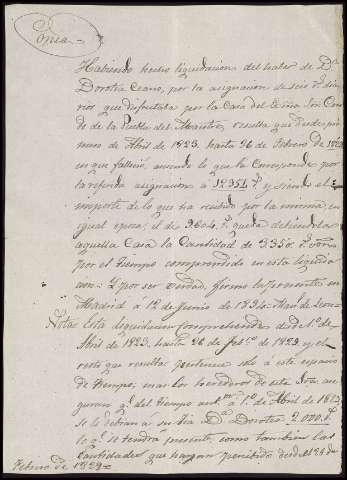 Copia =
Habiendo hecho liquidacion del haber de D.ª
Dorotea Cano, por la asignacion de seis r.s dia-
rios que disfrutaba por la Casa del Exmo. Sor. Con-
de de la Puebla del Maestre, resulta que desde pri-
mero de Abril de 1823, hasta 26 de Febrero de 1829
en que falleció, asciende lo que la corresponde por
la referida asignacion á 12954 r.s y siendo el
importe de lo que ha recibido por la misma en
igual epoca, el de 9604 r.s queda debiendola
aquella Casa la Cantidad de 3350 r.s von
por el tiempo comprendido en esta liquida
cion. Y por ser verdad, firmo la presente en
Madrid á 12 de Junio de 1834 =
Nota: Esta liquidacion comprehende desde 1.º de
Abril de 1823, hasta 26 de Feb.º de 1829 y el
resto que resulta pertenece solo á este espacio
de tiempo; mas los herederos de esta Sra. ase-
guran q.e del tiempo ant.or á 1.º de Abril de 1823
se le debian a su tia D.ª Dorotea 2.000 r.s
lo q.e se tendrá presente, como tambien las
Cantidades que hayan percibido desde el 26 de
Febrero de 1829 =